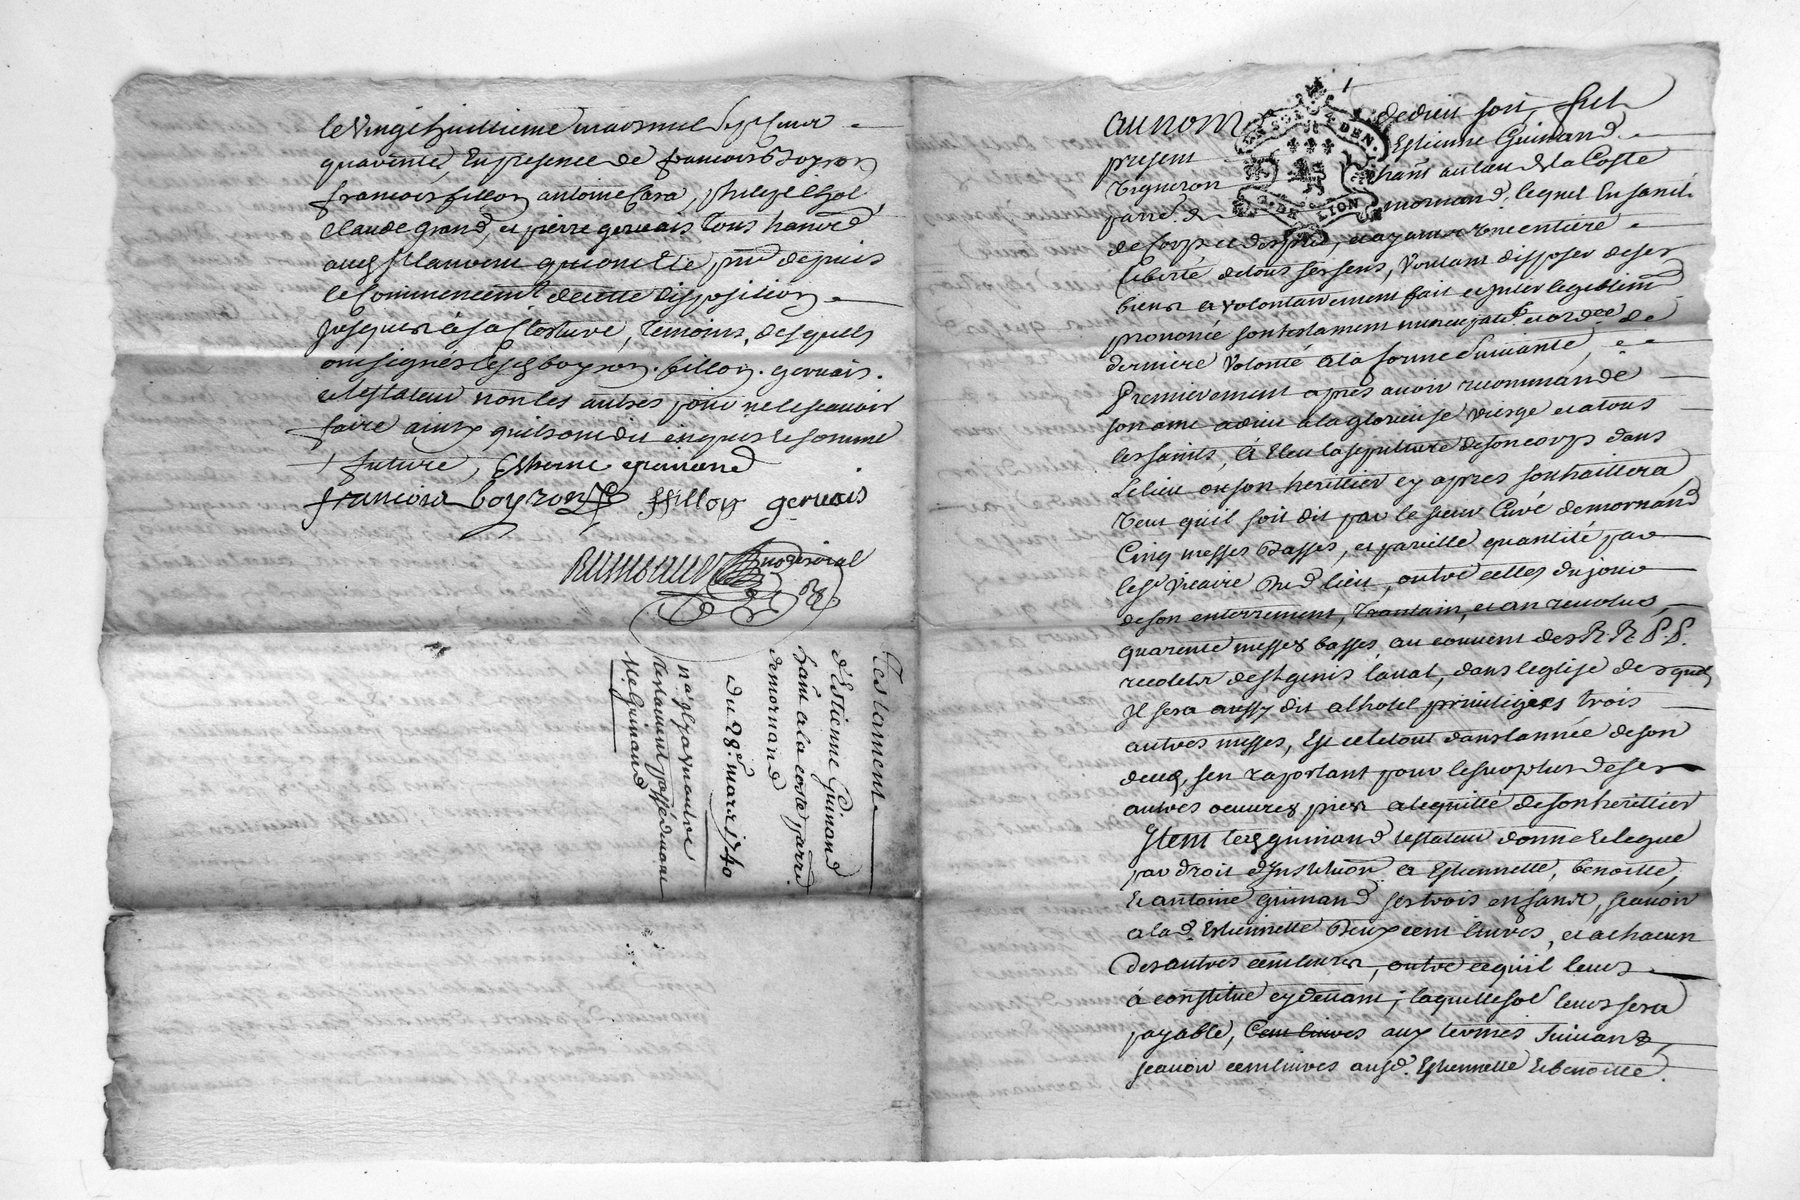 le Vingt huittieme mars mil Sept Cent
quarente, En presence de francois Boyron
francois fillon antoine Cara,
Claude grand, et pierre gervais tous hants
depuis
le Commencemt de cette disposition
Jusques à sa Closture, Temoins, desquels
ont signés lesds boyron. fillon. gervais.
et testateur non les autres pour ne le scavoir
faire ainsy quils ont dit enquis et somme
future, Estienne guinand
francois boyron ffillon gervais
Testament
d'Estienne Guinand
hant a la coste parre.
de mornand
du 28e. mars 1740
na. jl y a un autre
testament passé devant
Me. Guinand
au nom de dieu soit, fut
present Estienne Guinand
Vigneron hant au lieu de la Coste
parre. de mornand, lequel En santé
de Corps et desprit, et ayant Une entiere
liberté de tous ses sens, Voulant disposer de ses
biens a volontairement fait et inteligiblemt
prononcé son testament nuncupatif et ordce de
derniere Volonté a la forme Suivante,
Premierement apres avoir recommandé
son ame a dieu a la glorieuse vierge et a tous
les saints, à Eleu la sepulture de son corps dans
Le lieu ou son herittier cy apres souhaittera,
Veut qu'il soit dit par le sieur Curé de mornand
Cinq messes Basses, et pareille quantité par
le sr Vicaire Dud lieu, outre celles du jour
de son enterrement, trantain, et an revolus,
quarente messes basses, au couvent des R. R. P. P.
recolets de st genis laval, dans leglise desquels
Jl sera aussy dit a lhotel privilegiés trois
autres messes, Et ce le tout dans lannée de son
deces, sen raportant pour le surplus de ses
autres oeuvres pies a lequitté de son herittier
Jtem led guinand testateur donne et legue
par droit d'Jnstitution a Estiennette, benoitte,
Et antoine guinand ses trois enfans, scavoir
a lad. Estiennette Deux cent livres, et a chacun
des autres cent livres, outre ce quil leurs
à constitué cy devant; laquelle so[mme] leurs sera
payable, Cent livres aux termes suivans,
scavoir cent livres ausd. Estiennette et benoitte